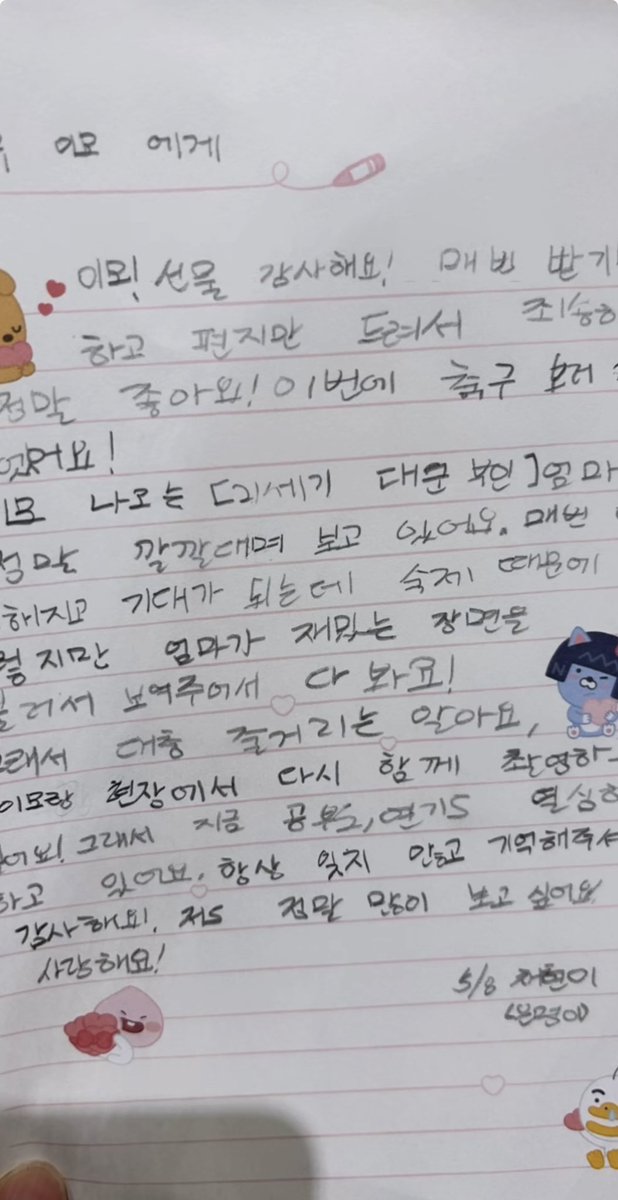 이모 에게
이모! 선물 감사해요! 매번 받기
하고 편지만 드려서 죄송하
정말 좋아요! 이번에 축구 보러
었어요!
이모 나오는 [21세기 대군 부인] 엄마
정말 깔깔대며 보고 있어요. 매번
해지고 기대가 되는데 숙제 때문에
렇지만 엄마가 재밌는 장면을
불러서 보여주어서 다 봐요!
그래서 대충 줄거리는 알아요,
이모랑 현장에서 다시 함께 촬영하
어요! 그래서 지금 공부도, 연기도 열심히
하고 있어요. 항상 잊지 안고 기억해주셔
감사해요!, 저도 정말 많이 보고 싶어요
사랑해요!
5/8